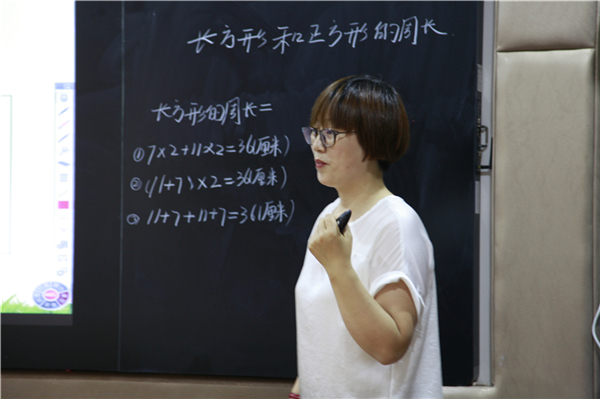 长方形和正方形的周长
长方形的周长=
①7×2+11×2=36(厘米)
②(11+7)×2=36(厘米)
③11+7+11+7=36(厘米)